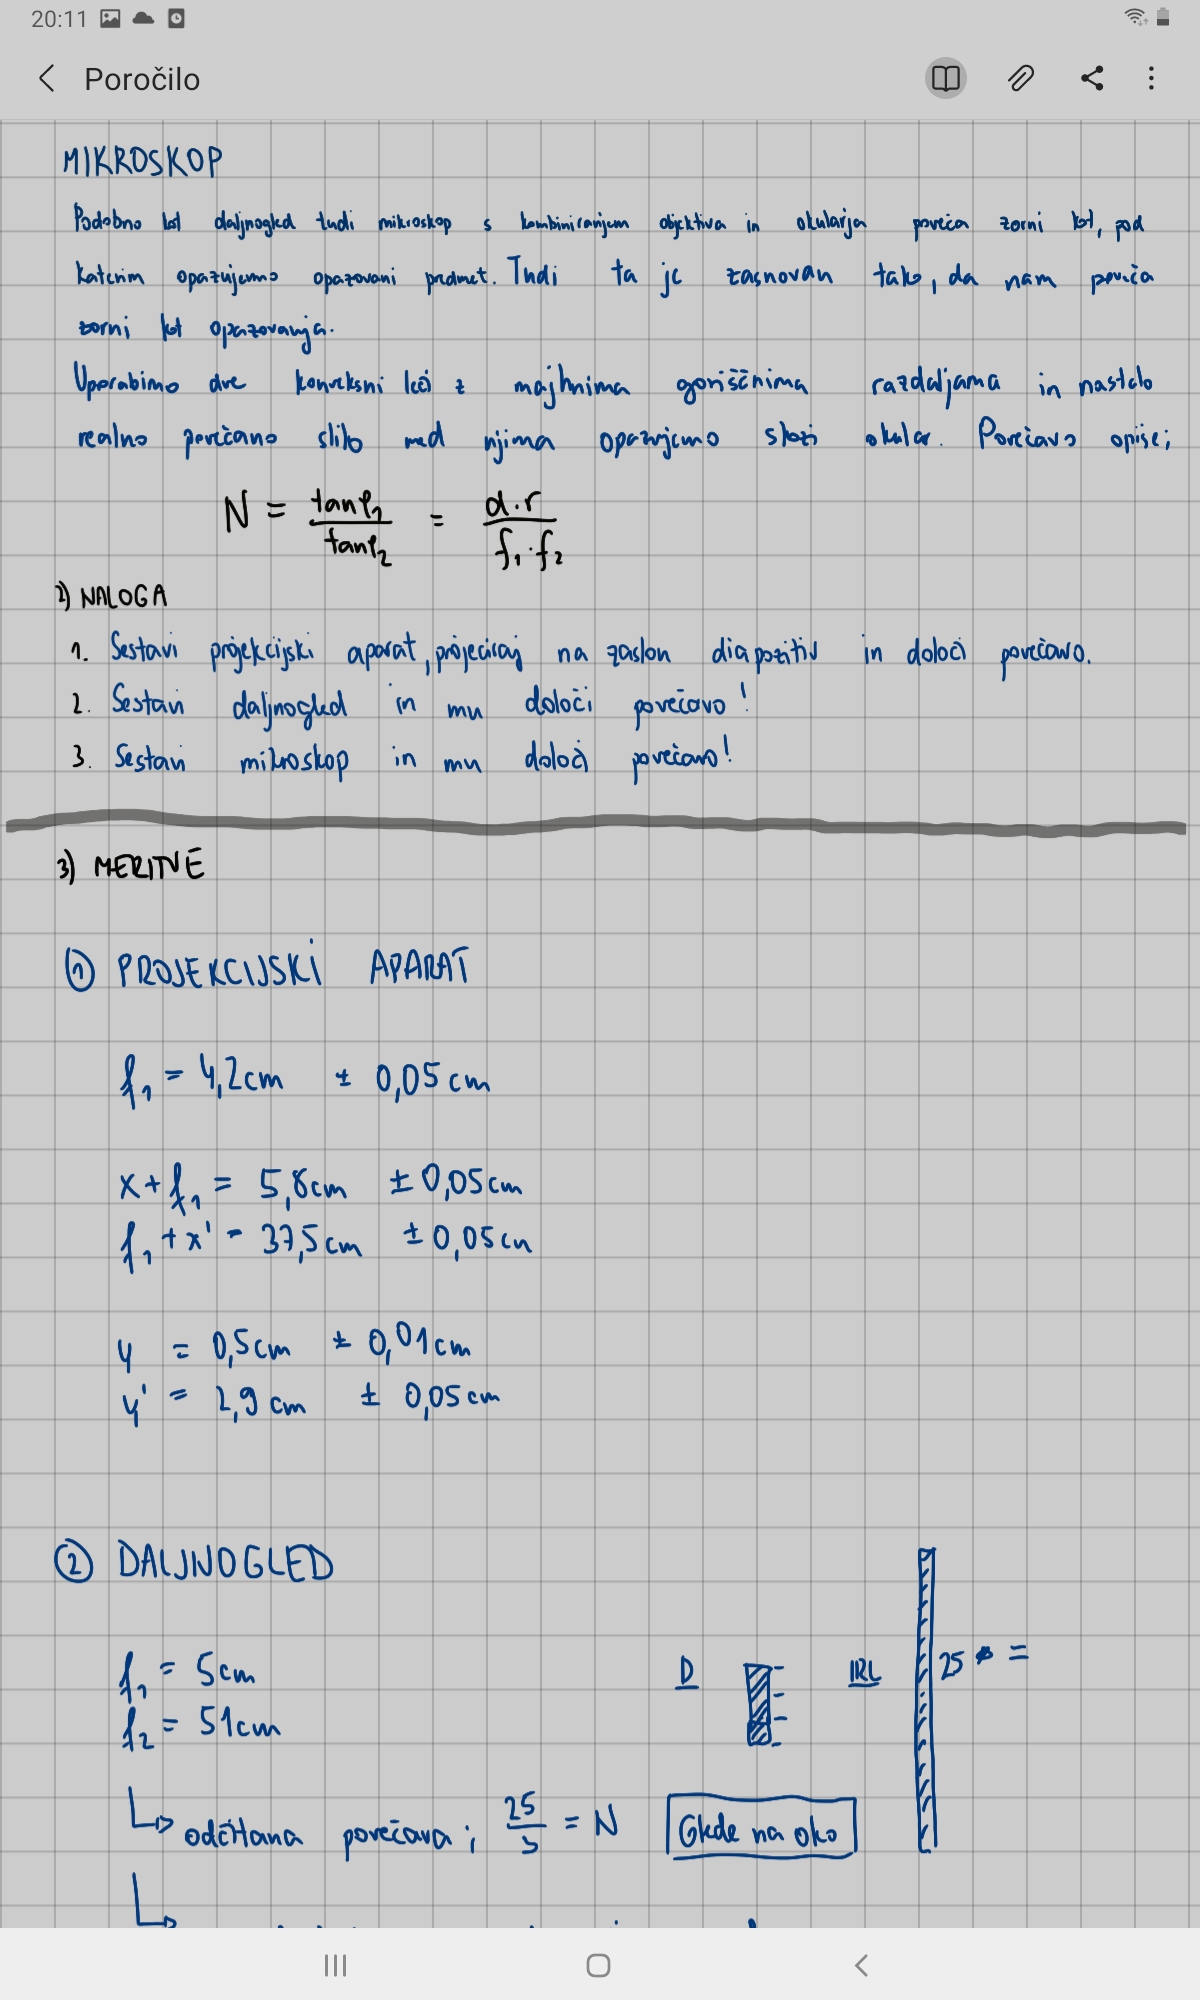 20:11
Poročilo
MIKROSKOP
Podobno kot daljnogled tudi mikroskop s kombiniranjem objektiva in okularja poveča zorni kot, pod
katerim opazujemo opazovani predmet. Tudi ta je zasnovan tako, da nam poveča
zorni kot opazovanja.
Uporabimo dve konveksni leči z majhnima goriščnima razdaljama in nastalo
realno povečano sliko med njima opazujemo skozi okular. Povečavo opiše;
N = tanφ₁/tanφ₂ = d·r/f₁·f₂
2) NALOGA
1. Sestavi projekcijski aparat, projeciraj na zaslon diapozitiv in določi povečavo.
2. Sestavi daljnogled in mu določi povečavo!
3. Sestavi mikroskop in mu določi povečavo!
3) MERITVE
① PROJEKCIJSKI APARAT
f₁ = 4,2cm ± 0,05cm
x+f₁ = 5,8cm ± 0,05cm
f₁+x' = 37,5cm ± 0,05cm
y = 0,5cm ± 0,01cm
y' = 2,9cm ± 0,05cm
② DALJNOGLED
f₁ = 5cm
f₂ = 51cm
D
IRL
25 =
odčitana povečava; 25/3 = N
Glede na oko